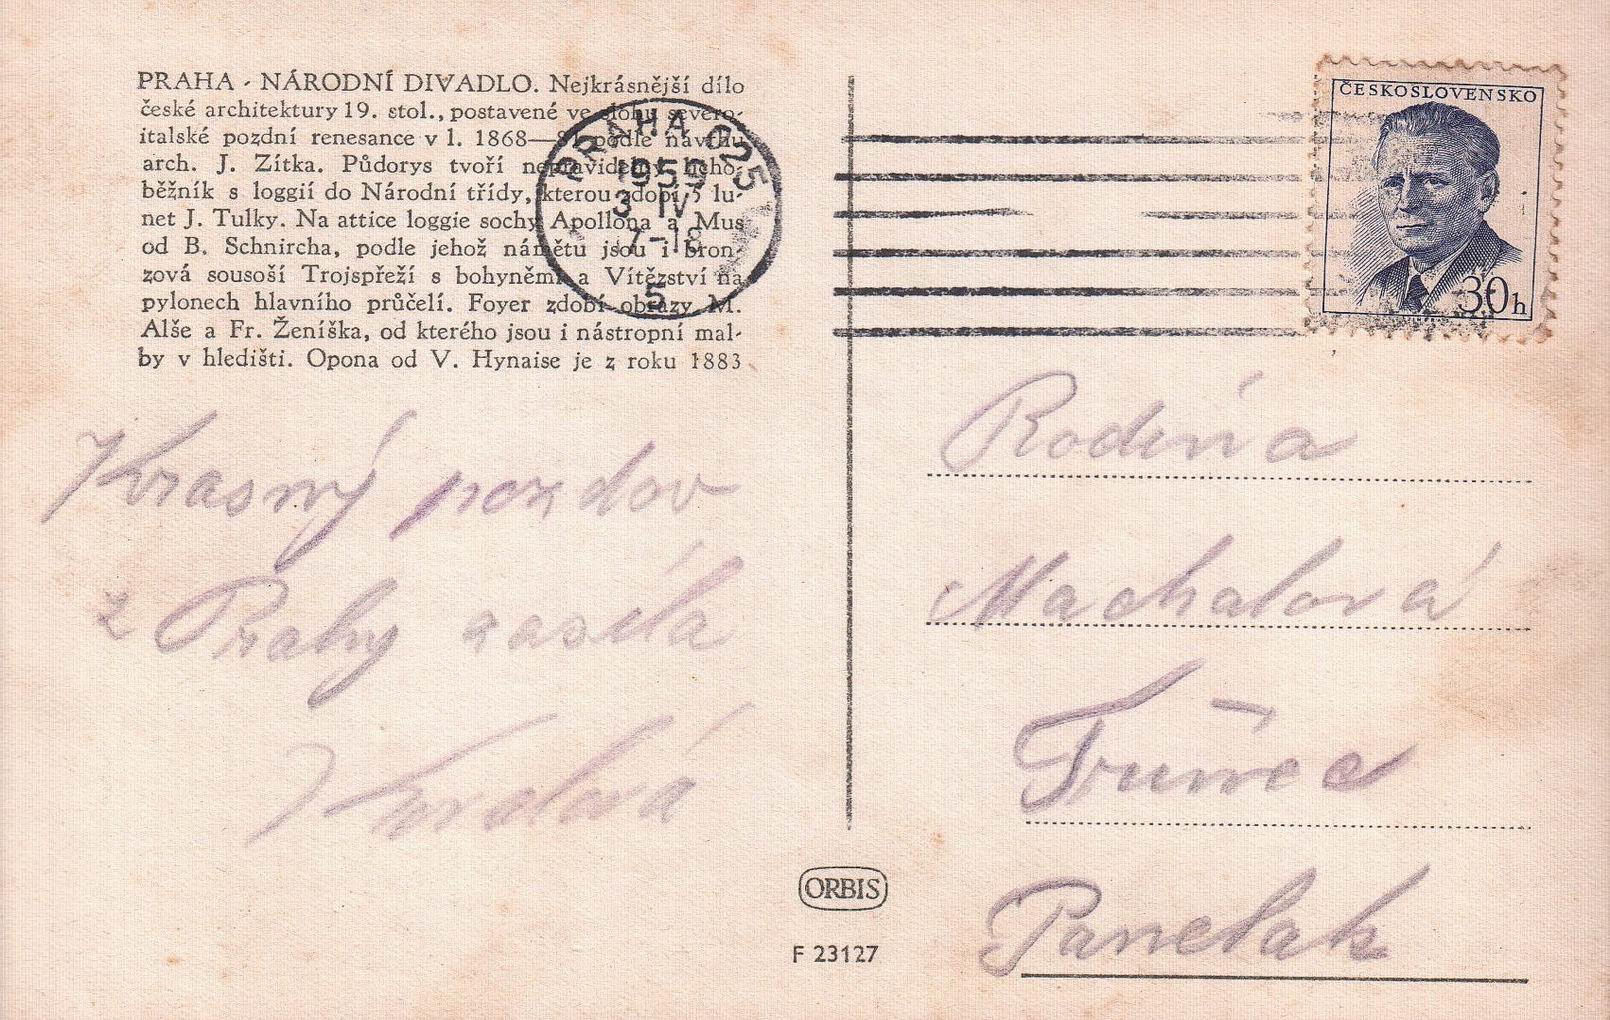 PRAHA - NÁRODNÍ DIVADLO. Nejkrásnější dílo
české architektury 19. stol., postavené ve slohu severo-
italské pozdní renesance v l. 1868—81 podle návrhu
arch. J. Zítka. Půdorys tvoří nepravidelný licho-
běžník s loggií do Národní třídy, kterou zdobí 5 lu-
net J. Tulky. Na attice loggie sochy Apollóna a Mus
od B. Schnircha, podle jehož námětu jsou i bron-
zová sousoší Trojspřeží s bohyněmi a Vítězství na
pylonech hlavního průčelí. Foyer zdobí obrazy M.
Alše a Fr. Ženíška, od kterého jsou i nástropní mal-
by v hledišti. Opona od V. Hynaise je z roku 1883
PRAHA 025
1959
3 IV
17-18
5
ČESKOSLOVENSKO
30h
Krasný pozdov
z Prahy zasíla
Rodina
Machalová
Panelak
ORBIS
F 23127